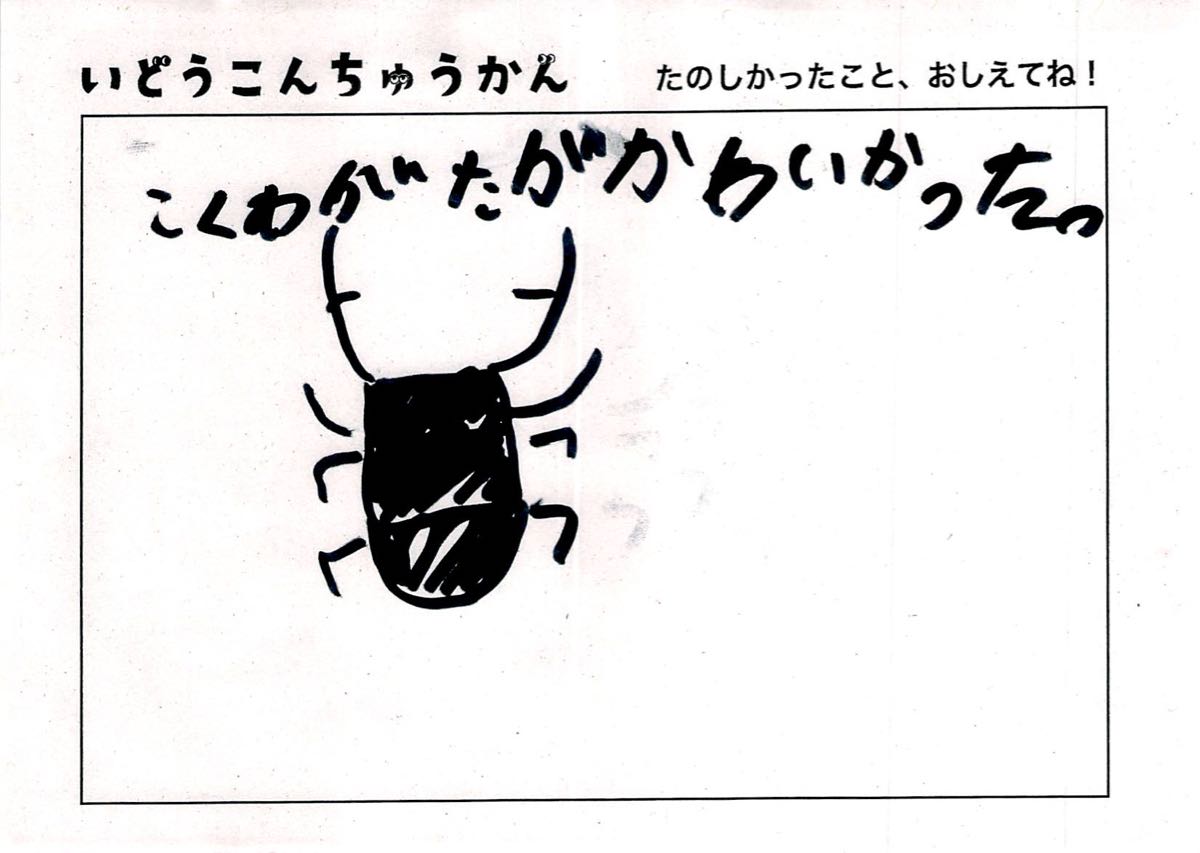 いどうこんちゅうかん
たのしかったこと、おしえてね！
こくわがたがかわいかったっ